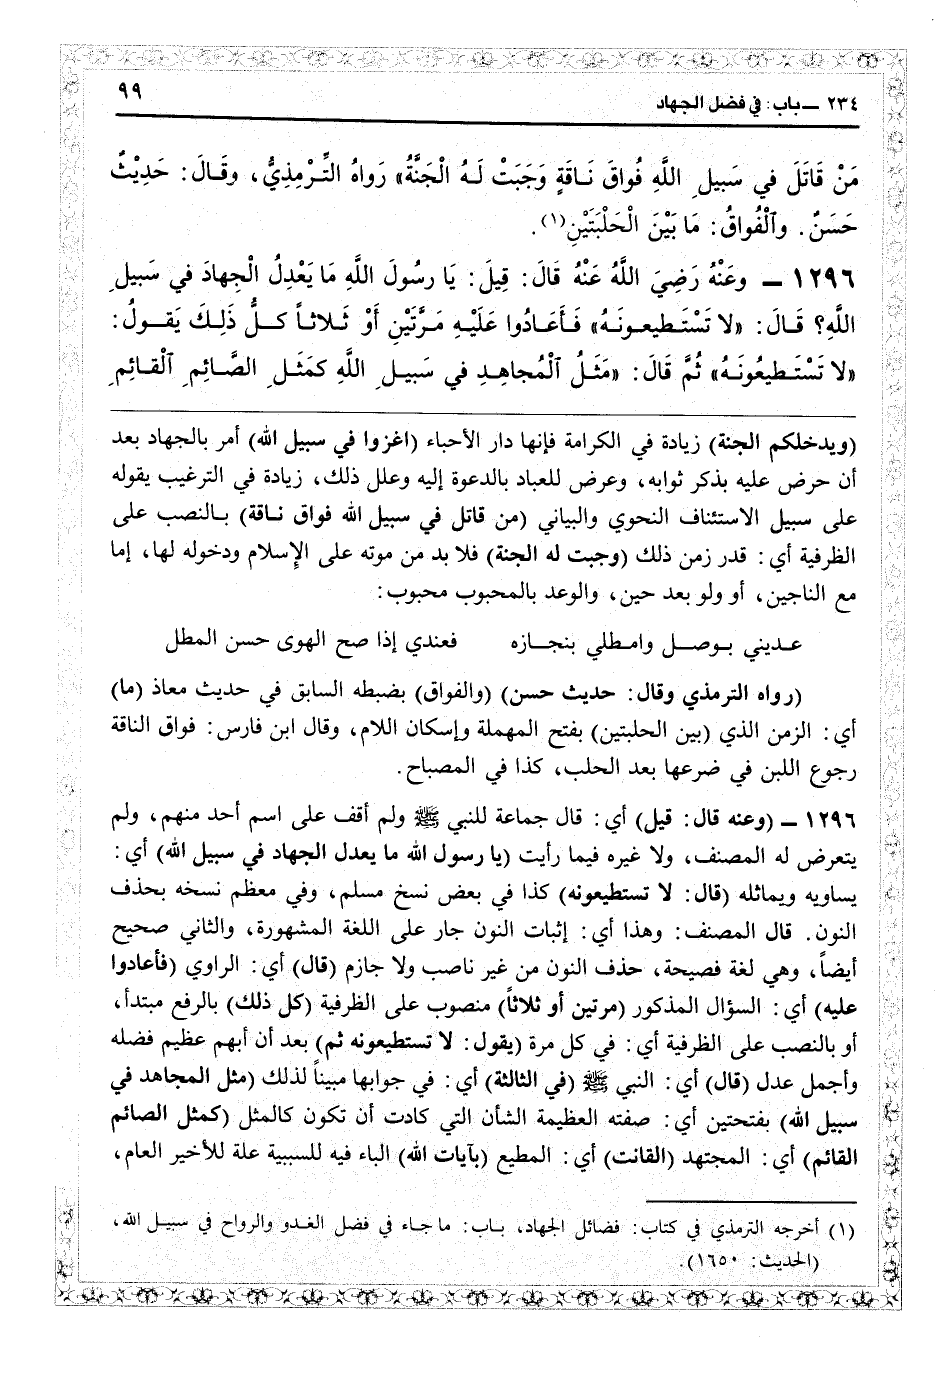 ٢٣٤ ــ باب: في فضل الجهاد
٩٩
مَنْ قَاتَلَ في سَبيلِ اللَّهِ فُواقَ نَاقَةٍ وَجَبَتْ لَهُ الْجَنَّةُ» رَواهُ التِّرْمِذِيُّ، وقَالَ: حَدِيْثٌ
حَسَنٌ. وٱلْفُواقُ: مَا بَيْنَ الْحَلْبَتَيْنِ(١).
١٢٩٦ ــ وعَنْهُ رَضِيَ اللَّهُ عَنْهُ قَالَ: قِيلَ: يَا رسُولَ اللَّهِ مَا يَعْدِلُ الْجِهادَ في سَبيلِ
اللَّهِ؟ قَالَ: «لا تَسْتَطيعونَهُ» فَأَعَادُوا عَلَيْهِ مَرَّتَيْنِ أَوْ ثَلاثاً كلُّ ذَلِكَ يَقولُ:
«لا تَسْتَطيعُونَهُ» ثُمَّ قَالَ: «مَثَلُ ٱلْمُجاهِدِ في سَبيلِ اللَّهِ كمَثَلِ الصَّائِمِ ٱلْقائِمِ
(ويدخلكم الجنة) زيادة في الكرامة فإنها دار الأحباء (اغزوا في سبيل الله) أمر بالجهاد بعد
أن حرض عليه بذكر ثوابه، وعرض للعباد بالدعوة إليه وعلل ذلك، زيادة في الترغيب يقوله
على سبيل الاستئناف النحوي والبياني (من قاتل في سبيل الله فواق ناقة) بالنصب على
الظرفية أي: قدر زمن ذلك (وجبت له الجنة) فلا بد من موته على الإسلام ودخوله لها، إما
مع الناجين، أو ولو بعد حين، والوعد بالمحبوب محبوب:
عديني بوصل وامطلي بنجازه فعندي إذا صح الهوى حسن المطل
(رواه الترمذي وقال: حديث حسن) (والفواق) بضبطه السابق في حديث معاذ (ما)
أي: الزمن الذي (بين الحلبتين) بفتح المهملة وإسكان اللام، وقال ابن فارس: فواق الناقة
رجوع اللبن في ضرعها بعد الحلب، كذا في المصباح.
١٢٩٦ ــ (وعنه قال: قيل) أي: قال جماعة للنبي ﷺ ولم أقف على اسم أحد منهم، ولم
يتعرض له المصنف، ولا غيره فيما رأيت (يا رسول الله ما يعدل الجهاد في سبيل الله) أي:
يساويه ويماثله (قال: لا تستطيعونه) كذا في بعض نسخ مسلم، وفي معظم نسخه بحذف
النون. قال المصنف: وهذا أي: إثبات النون جار على اللغة المشهورة، والثاني صحيح
أيضاً، وهي لغة فصيحة، حذف النون من غير ناصب ولا جازم (قال) أي: الراوي (فأعادوا
عليه) أي: السؤال المذكور (مرتين أو ثلاثاً) منصوب على الظرفية (كل ذلك) بالرفع مبتدأ،
أو بالنصب على الظرفية أي: في كل مرة (يقول: لا تستطيعونه ثم) بعد أن أبهم عظيم فضله
وأجمل عدل (قال) أي: النبي ﷺ (في الثالثة) أي: في جوابها مبيناً لذلك (مثل المجاهد في
سبيل الله) بفتحتين أي: صفته العظيمة الشأن التي كادت أن تكون كالمثل (كمثل الصائم
القائم) أي: المجتهد (القانت) أي: المطيع (بآيات الله) الباء فيه للسببية علة للأخير العام،
(١) أخرجه الترمذي في كتاب: فضائل الجهاد، باب: ما جاء في فضل الغدو والرواح في سبيل الله،
(الحديث: ١٦٥٠).